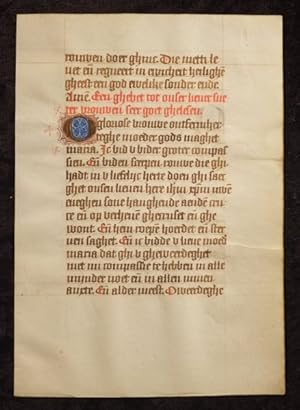 rouwen doer ghinc. Die metti le
uet eñ regneert in ewicheit heilighē
gheest een god ewelike sonder ende
Amē. Een ghebet tot onser lieuer vru
wer vrouwen seer goet ghelesen
O gloriose vrouwe ontfermher
teghe moeder gods maghet
maria. Ic bid v bider groter compas
sien. Eñ biden scerpen rouwe die ghi
hadt in v liefliic herte doen ghi saec
ghet onsen lieuen here ihū xpm uwē
eneghen sone hanghende aenden cru
ce eñ op verheuē ghecruset eñ ghe
wont. Eñ hem roepē hoerdet eñ ster
uen saghet. Eñ ic bidde v lieue moed
maria dat ghi v gheweerdeghet
met mi compassie te hebben in alle
minder noet eñ in allen minen
anxte. Eñ alder meest. O weerdeghe